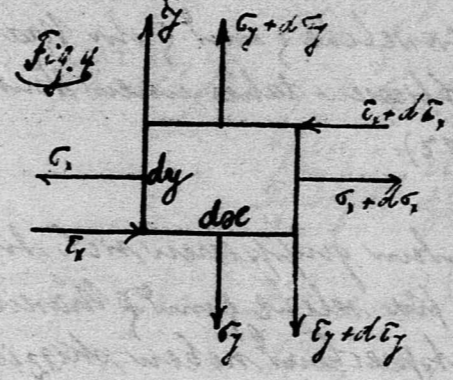 Fig. 4
y
σy+dσy
τx+dτx
σx
dy
σx+dσx
dx
τx
σy
τy+dτy